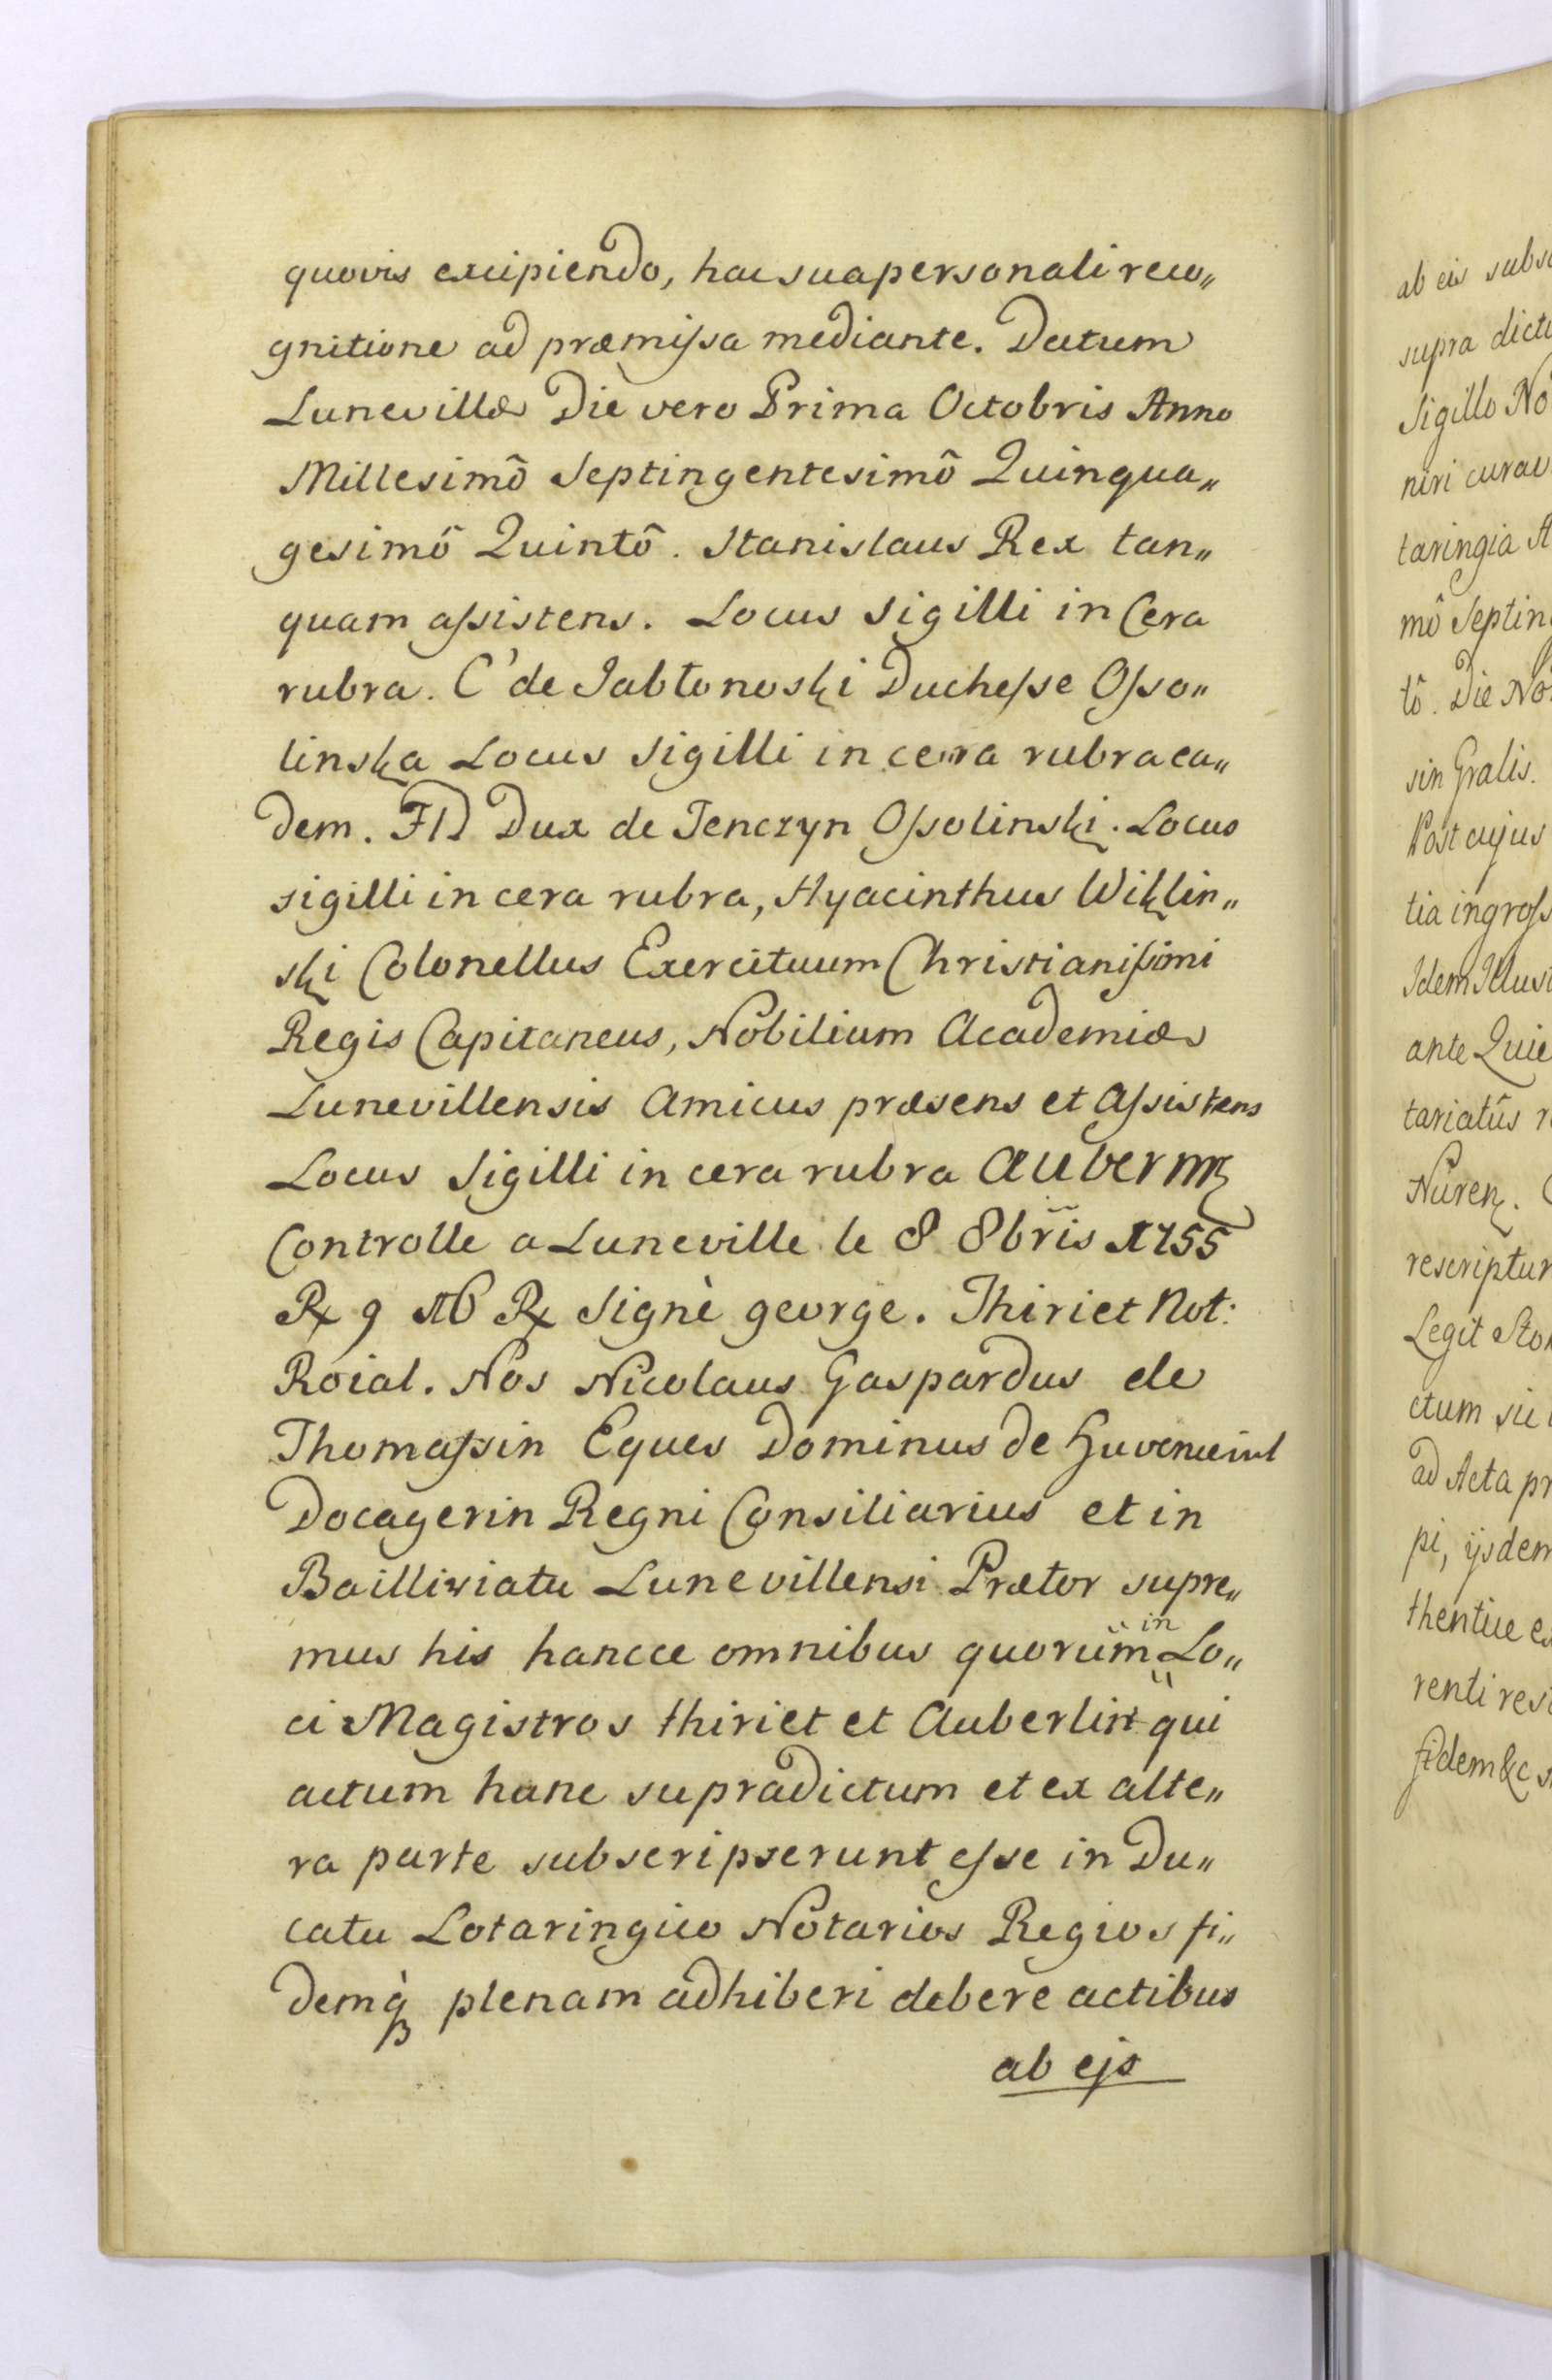 quovis excipiendo, hac sua personali reco„
gnitione ad præmissa mediante. Datum
Lunevillæ Die vero Prima Octobris Anno
Millesimô Septingentesimô Quinqua„
gesimô Quintô. Stanislaus Rex tan„
quam assistens. Locus Sigilli in Cera
rubra. C' de Jabłonoski Duchesse Osso„
linska Locus Sigilli in cera rubra ea„
dem. FD Dux de Tenczyn Ossolinski. Locus
sigilli in cera rubra, Hyacinthus Wiklin„
ski Colonellus Exercituum Christianissimi
Regis Capitaneus, Nobilium Academiæ
Lunevillensis Amicus præsens et Assistens
Locus Sigilli in cera rubra Auberm
Controlle a Luneville le 8 8bris 1755
Rx 9 Rx Signè george. Thiriet Not:
Roial. Nos Nicolaus Gaspardus de
Thomassin Eques Dominus de
Docagerin Regni Consiliarius et in
Bailliviatu Lunevillensi Prætor supre„
mus his hancce omnibus quorum in Lo„
ci Magistros thiriet et Auberlin qui
actum hanc supradictum et ex alte„
ra parte subscripserunt esse in Du„
catu Lotaringico Notarios Regios fi„
demq́ plenam adhiberi debere actibus
ab ejs
ab eis subsc
supra dictu
Sigillo No
niri curav
taringia A
mô Septin
tô. Die No
sin Gralis.
Post cujus
tia ingross
Idem Illust
ante Quie
tariatûs r
Nuren.
rescriptur
Legit Sto
ctum sic
ad Acta pr
pi, ijsdem
thentice e
renti rest
fidem &c